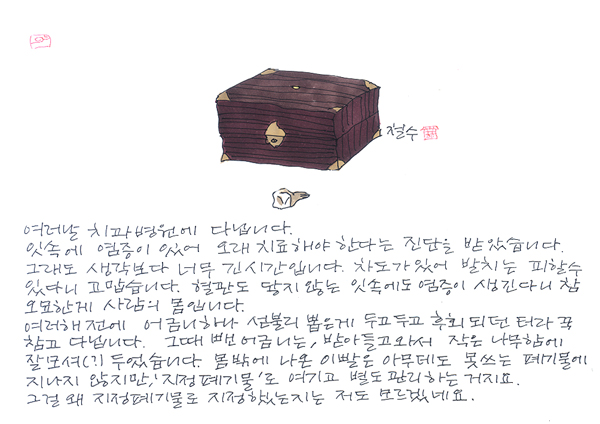 철수
여러날 치과병원에 다닙니다.
잇속에 염증이 있어 오래 치료해야 한다는 진단을 받았습니다.
그래도 생각보다 너무 긴시간입니다. 차도가 있어 발치는 피할수
있다니 고맙습니다. 혈관도 닿지 않는 잇속에도 염증이 생긴다니 참
오묘한게 사람의 몸입니다.
여러해전에 어금니하나 섣불리 뽑은게 두고두고 후회되던 터라 꾹
참고 다닙니다. 그때 뺀 어금니는, 받아들고와서 작은 나무함에
잘모셔(?) 두었습니다. 몸밖에 나온 이빨은 아무데도 못쓰는 폐기물에
지나지 않지만, '지정폐기물'로 여기고 별도 관리하는 거지요.
그걸 왜 지정폐기물로 지정했는지는 저도 모르겠네요.